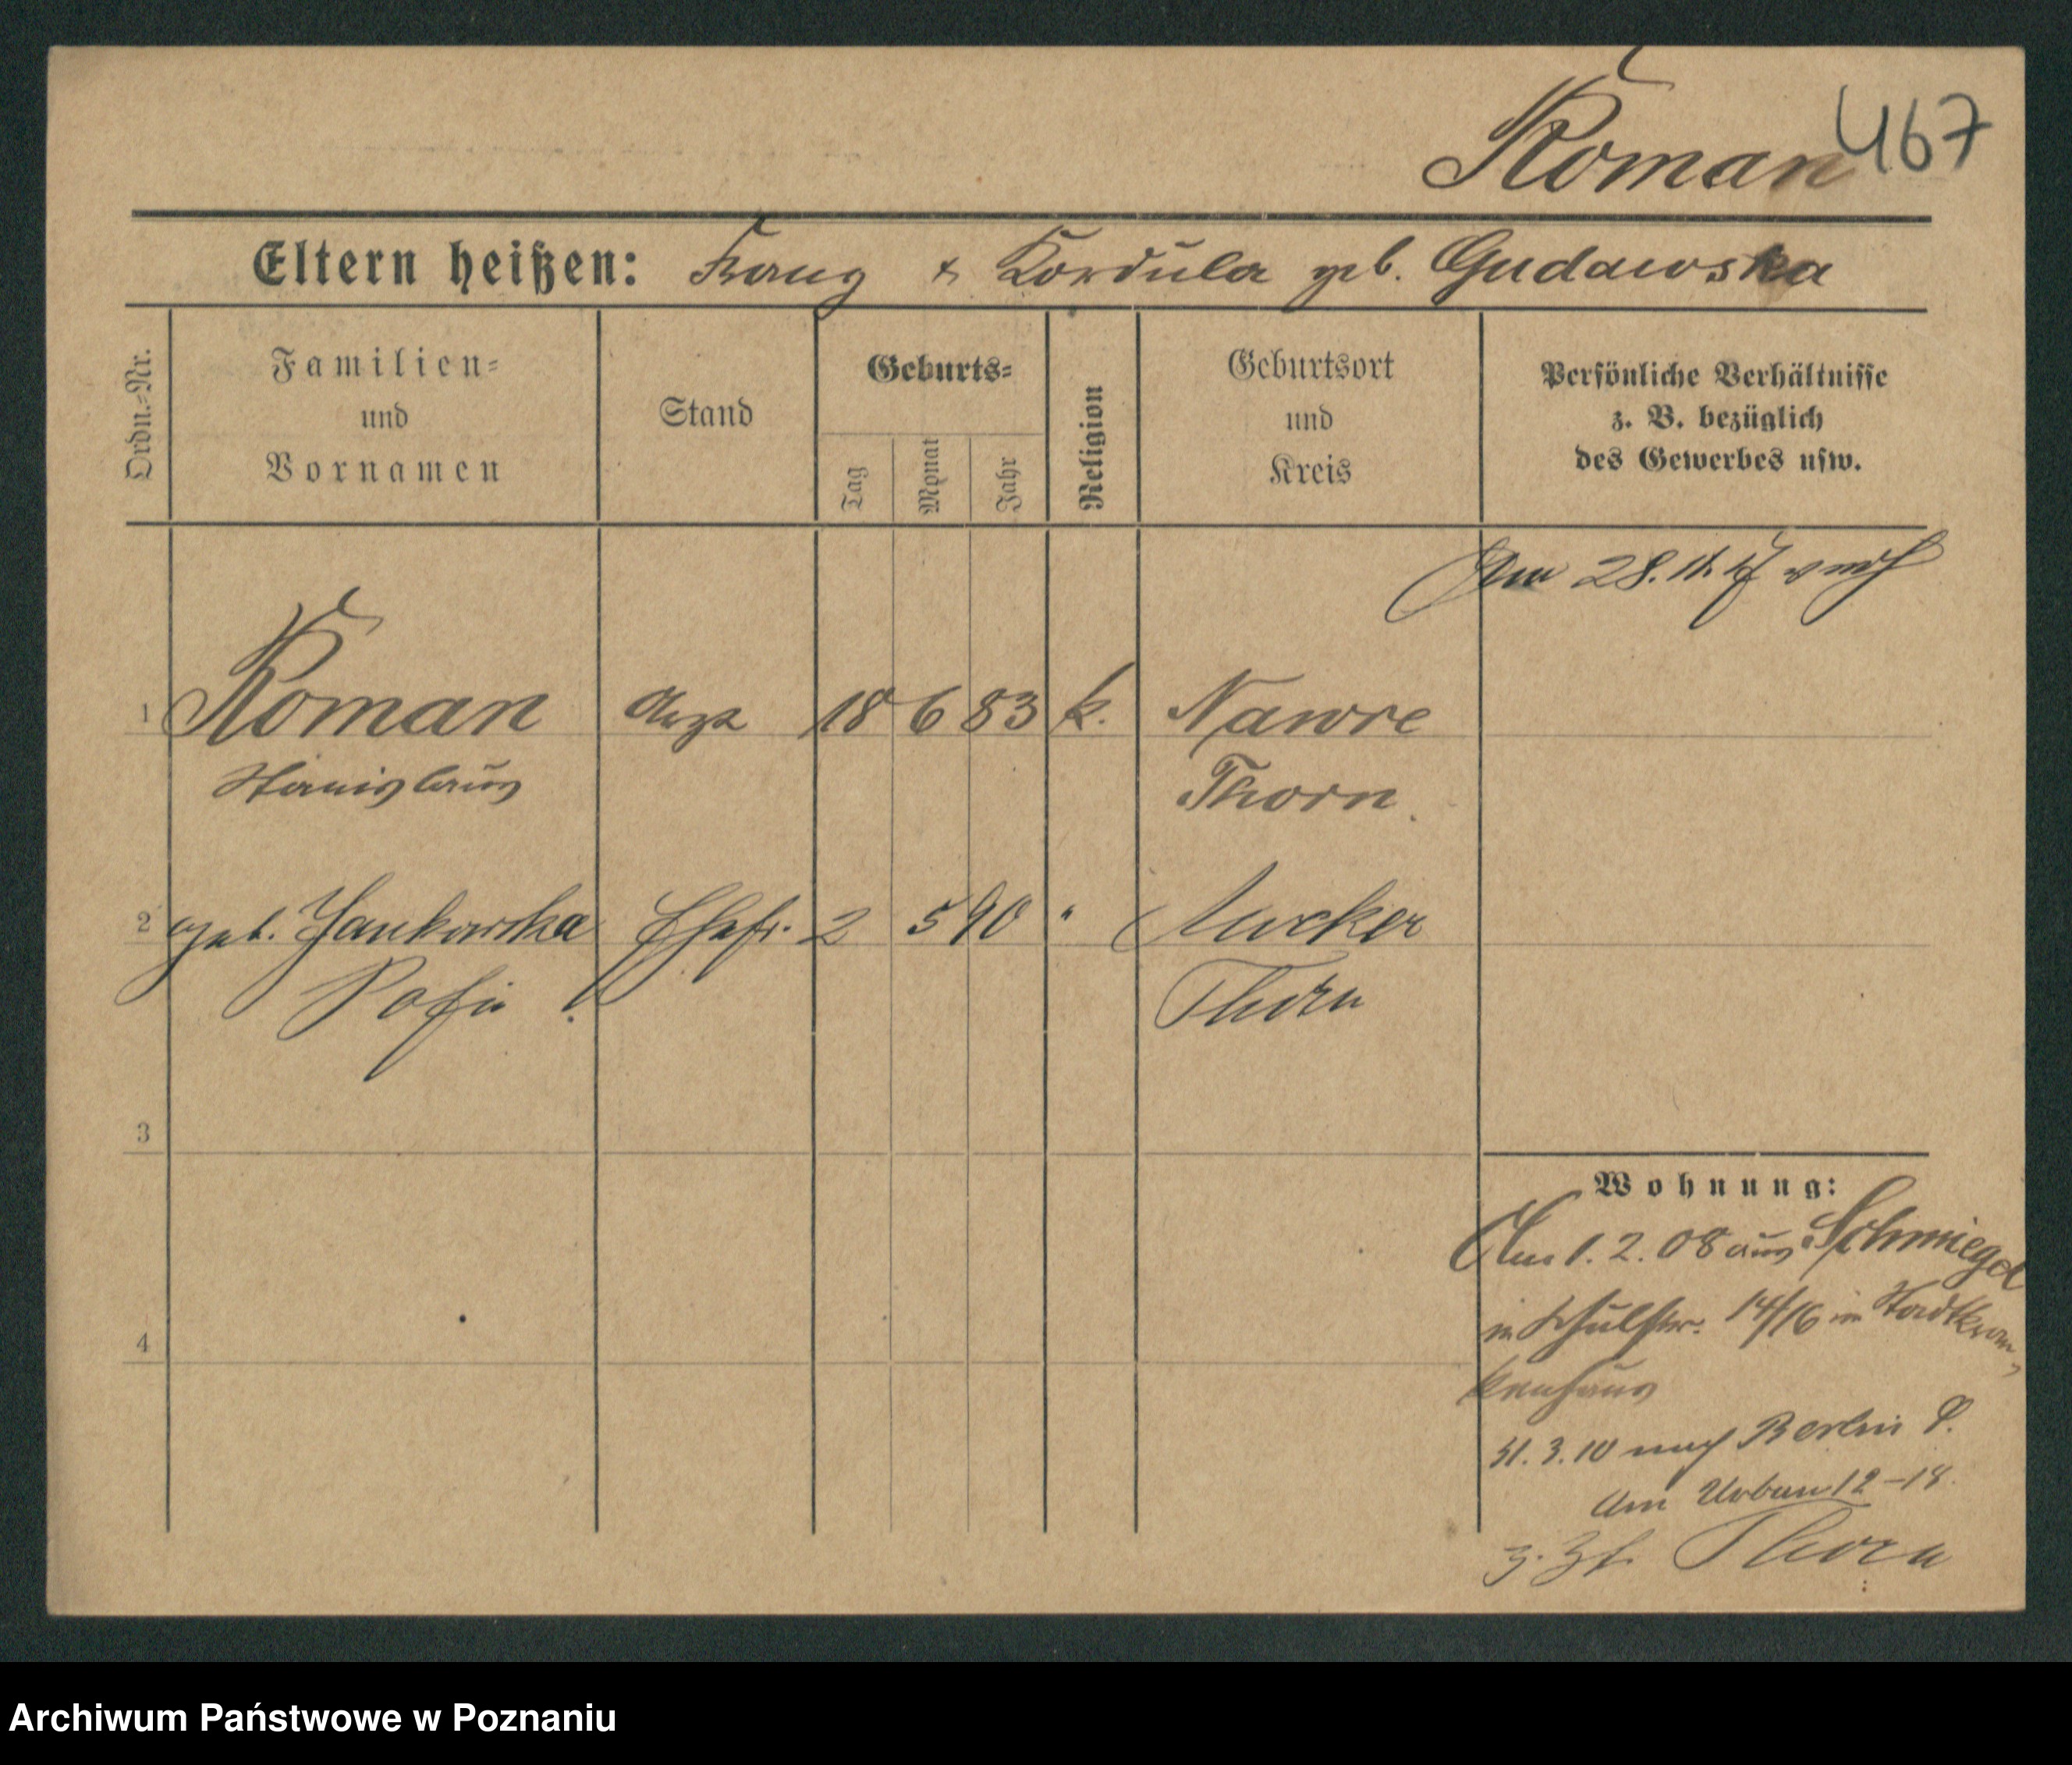 Roman
467
Eltern heißen: Franz & Kordula geb. Gudawska
Ordn.-Nr.
Familien-
und
Vornamen
Stand
Geburts-
Tag
Monat
Jahr
Religion
Geburtsort
und
Kreis
Persönliche Verhältnisse
z. B. bezüglich
des Gewerbes usw.
Am 28. 11. 17
1 Roman Arzt 18 6 83 k. Nawre
Stanislaus Thorn.
2 geb. Jankowska Ehefr. 2 5 90 "
Sofie Thorn
3
Wohnung:
Am 1. 2. 08 aus Schmiegel
in Schulstr. 14/16 im Stadtkran-
kenhaus
4
31. 3. 10 nach Berlin S.
Am Urban 12-18.
z. Zt. Thorn
Archiwum Państwowe w Poznaniu